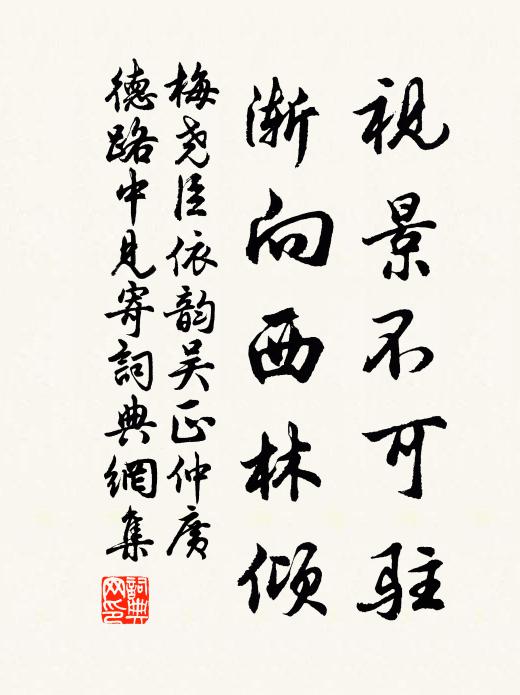 视景不可驻
渐向西林倾
梅尧臣依韵吴正仲广
德路中见寄词典網集
詞典网印